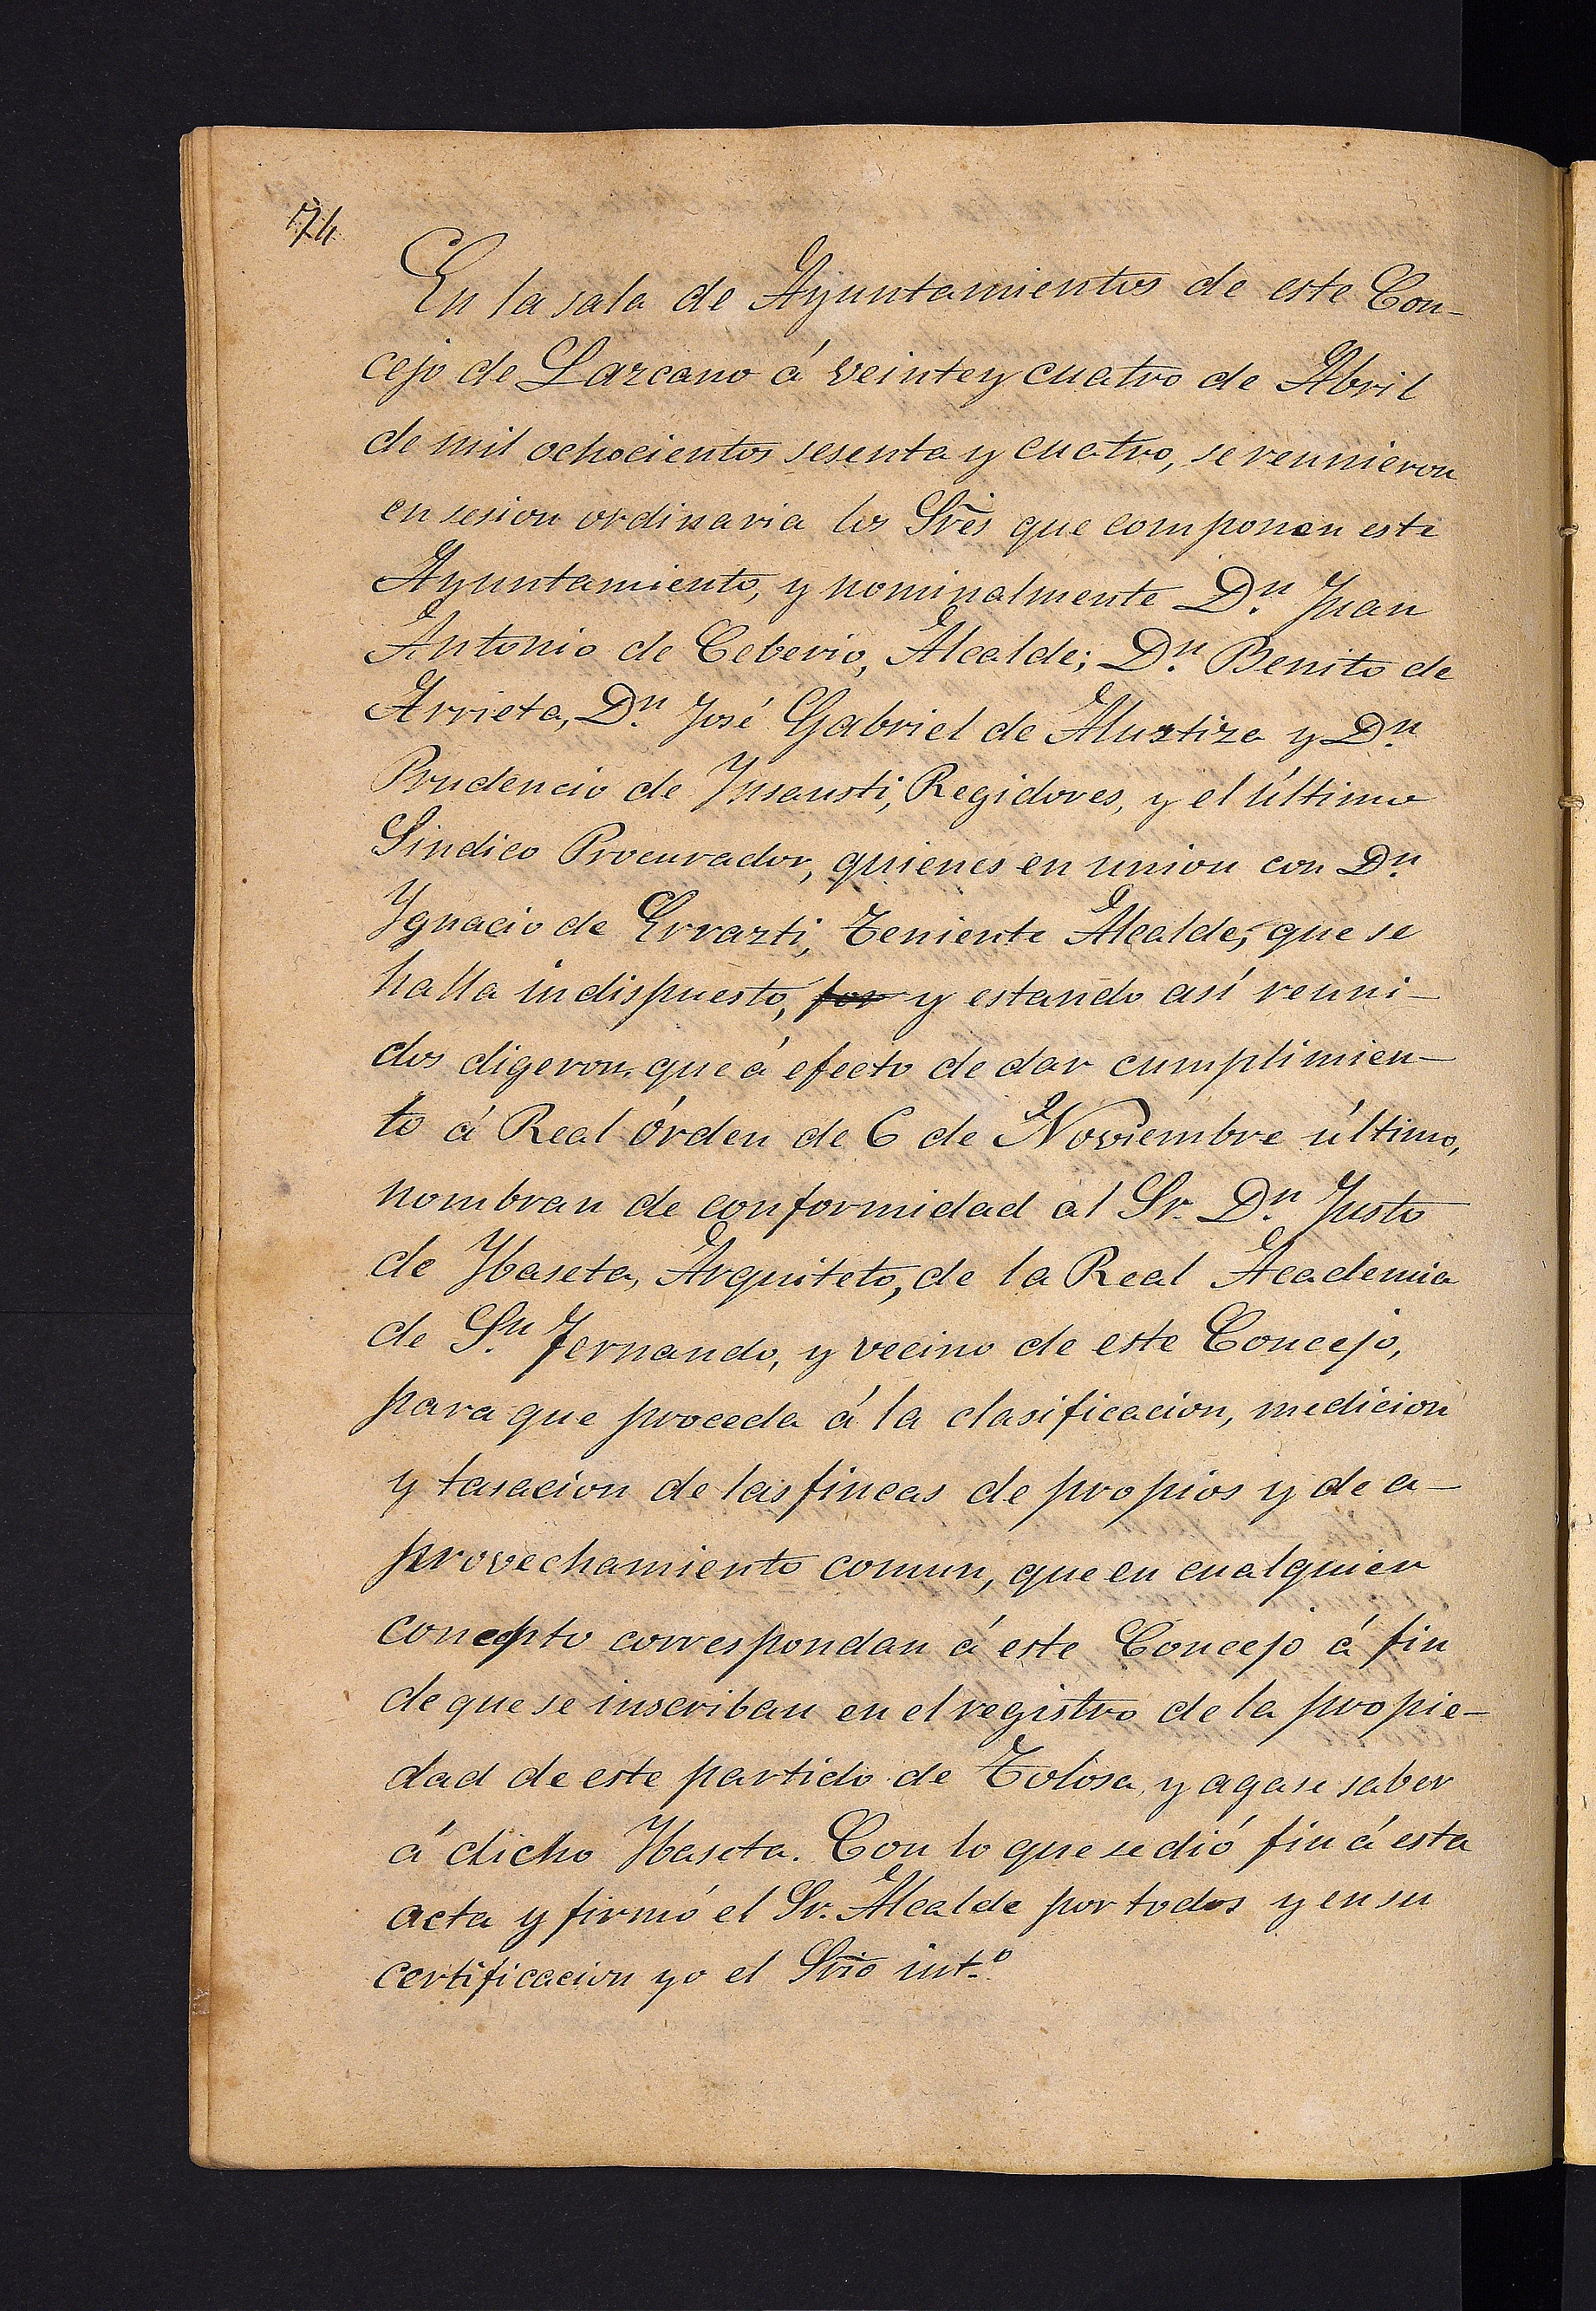 74
En la sala de Ayuntamientos de este Con-
cejo de Lazcano á veintey cuatro de Abril
de mil ochocientos sesenta y cuatro, se reunieron
en sesion ordinaria los Sr̃es que componen este
Ayuntamiento, y nominalmente Dⁿ. Juan
Antonio de Ceberio, Alcalde; Dⁿ. Benito de
Arrieta, Dⁿ. José Gabriel de Alustiza y Dⁿ.
Prudencio de Ynsausti, Regidores, y el último
Sindico Procurador, quienes en union con Dⁿ.
Ygnacio de Errazti, Teniente Alcalde, que se
halla indispuesto, por y estando así reuni-
dos digeron, que á efecto de dar cumplimien-
to á Real órden de 6 de Noviembre último,
nombran de conformidad al Sr. Dⁿ. Justo
de Ybaseta, Arquiteto, de la Real Academia
de Sⁿ. Fernando, y vecino de este Concejo,
para que proceda á la clasificacion, medicion
y tasacion de las fincas de propios y de a-
provechamiento comun, que en cualquier
concepto correspondan á este Concejo á fin
de que se inscriban en el registro de la propie-
dad de este partido de Tolosa, y agase saber
á dicho Ybaseta. Con lo que se dió fin á esta
acta y firmó el Sr. Alcalde por todos y en su
certificacion yo el Sr̃io int.º